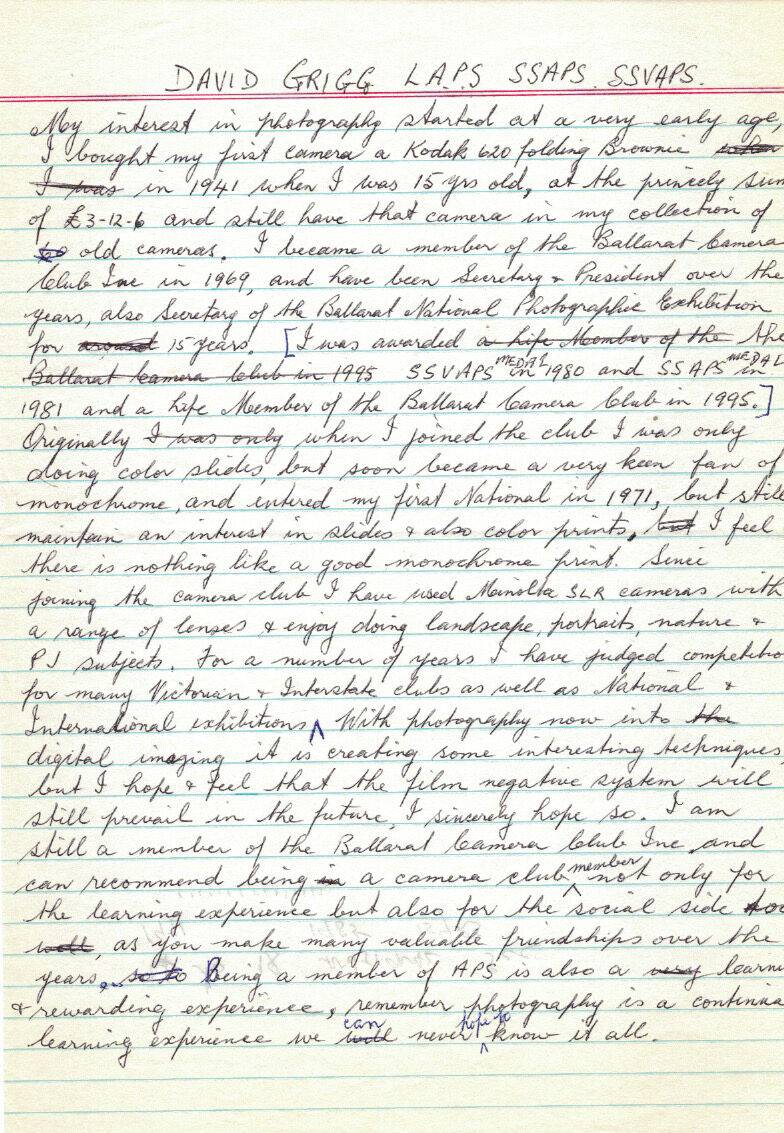 DAVID GRIGG L.A.P.S SSAPS. SSVAPS.
My interest in photography started at a very early age,
I bought my first camera a Kodak 620 folding Brownie when
I was in 1941 when I was 15 yrs old, at the princely sum
of £3-12-6 and still have that camera in my collection of
to old cameras. I became a member of the Ballarat Camera
Club Inc in 1969, and have been Secretary + President over the
years, also Secretary of the Ballarat National Photographic Exhibition
for around 15 years. [I was awarded a Life Member of the the
Ballarat Camera Club in 1995 SSVAPS MEDAL in 1980 and SSAPS MEDAL in
1981 and a Life Member of the Ballarat Camera Club in 1995.]
Originally I was only when I joined the club I was only
doing color slides, but soon became a very keen fan of
monochrome, and entered my first National in 1971, but still
maintain an interest in slides + also color prints, but I feel
there is nothing like a good monochrome print. Since
joining the camera club I have used Minolta SLR cameras with
a range of lenses + enjoy doing landscape, portraits, nature +
PJ subjects. For a number of years I have judged competitio
for many Victorian + Interstate clubs as well as National +
International exhibitions ^ With photography now into the
digital imaging it is creating some interesting techniques,
but I hope + feel that the film negative system will
still prevail in the future, I sincerely hope so. I am
still a member of the Ballarat Camera Club Inc, and
can recommend being in a camera club ^ member not only for
the learning experience but also for the social side too
well, as you make many valuable friendships over the
years, so to Being a member of APS is also a very learni
+ rewarding experience, remember photography is a continua
learning experience we will can never ^ hope to know it all.